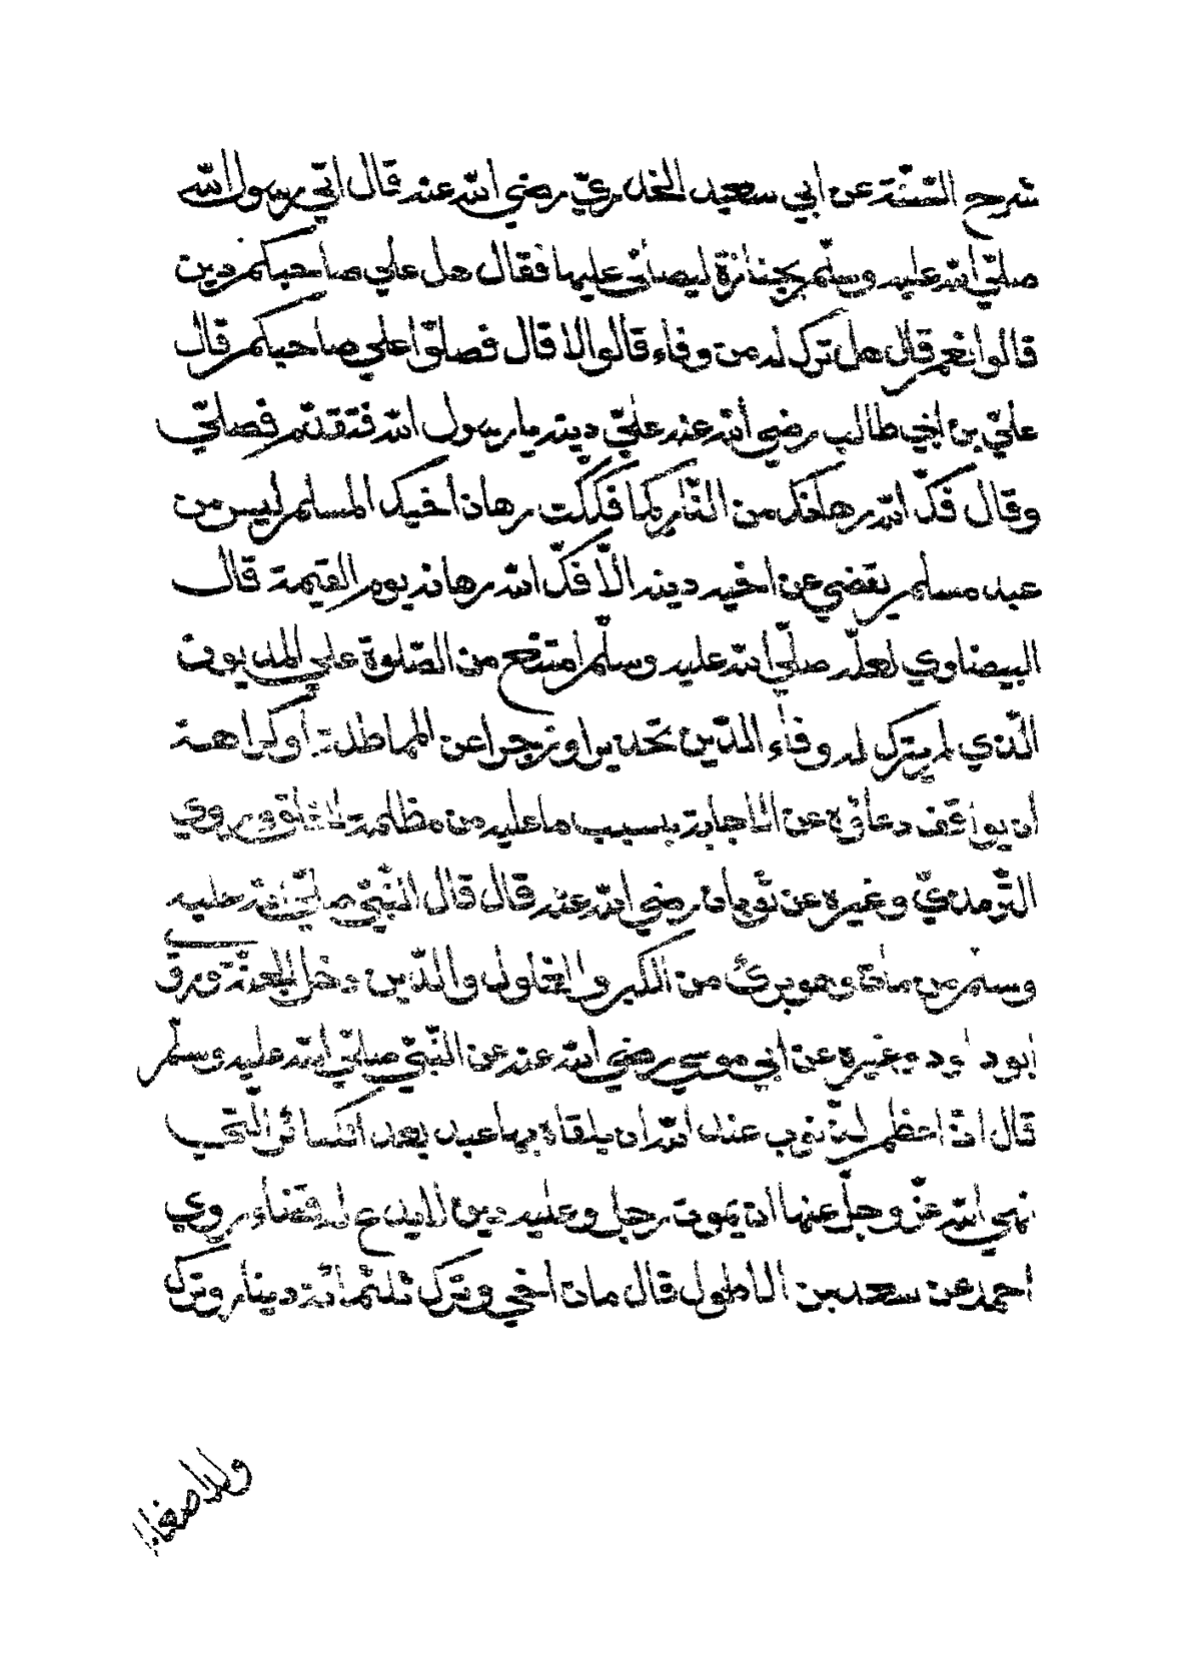 شرح السّنّة عن ابي سعيد الخدريّ رضي الله عنه قال اتي رسول الله
صلّي الله عليه وسلّم بجنازة ليصلّي عليها فقال هل علي صاحبكم دين
قالوا نعم قال هل ترك له من وفاء قالوا لا قال فصلّوا علي صاحبكم قال
عليّ بن ابي طالب رضي الله عنه عليّ دينه يا رسول الله فتقدّم فصلّي
وقال فكّ الله رهانك من النّار كما فككت رهان اخيك المسلم ليس من
عبد مسلم يقضي عن اخيه دينه الّا فكّ الله رهانه يوم القيمة قال
البيضاوي لعلّه صلّي الله عليه وسلّم امتنع من الصّلوة علي المديون
الّذي لم يترك له وفاء الدّين تحذيرا وزجرا عن المماطلة او كراهة
ان يواقف دعاؤه عن الاجابة بسبب ما عليه من مظلمة الخلق وروي
التّرمذيّ وغيره عن ثوبان رضي الله عنه قال قال النّبيّ صلّي الله عليه
وسلّم من مات وهو برئ من الكبر والغلول والدّين دخل الجنّة وروي
ابو داود وغيره عن ابي موسي رضي الله عنه عن النّبيّ صلّي الله عليه وسلّم
قال انّ اعظم الذّنوب عند الله ان يلقاه بها عبد بعد الكبائر الّتي
نهي الله عزّ وجلّ عنها ان يموت رجل وعليه دين لا يدع له قضاء وروي
احمد عن سعد بن الاطول قال مات اخي وترك ثلثمائة دينار وترك
ولدا صغارا